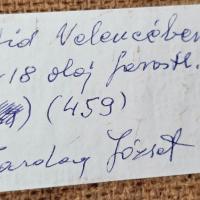 híd Velencében
18 olaj farostl.
) (459)
József